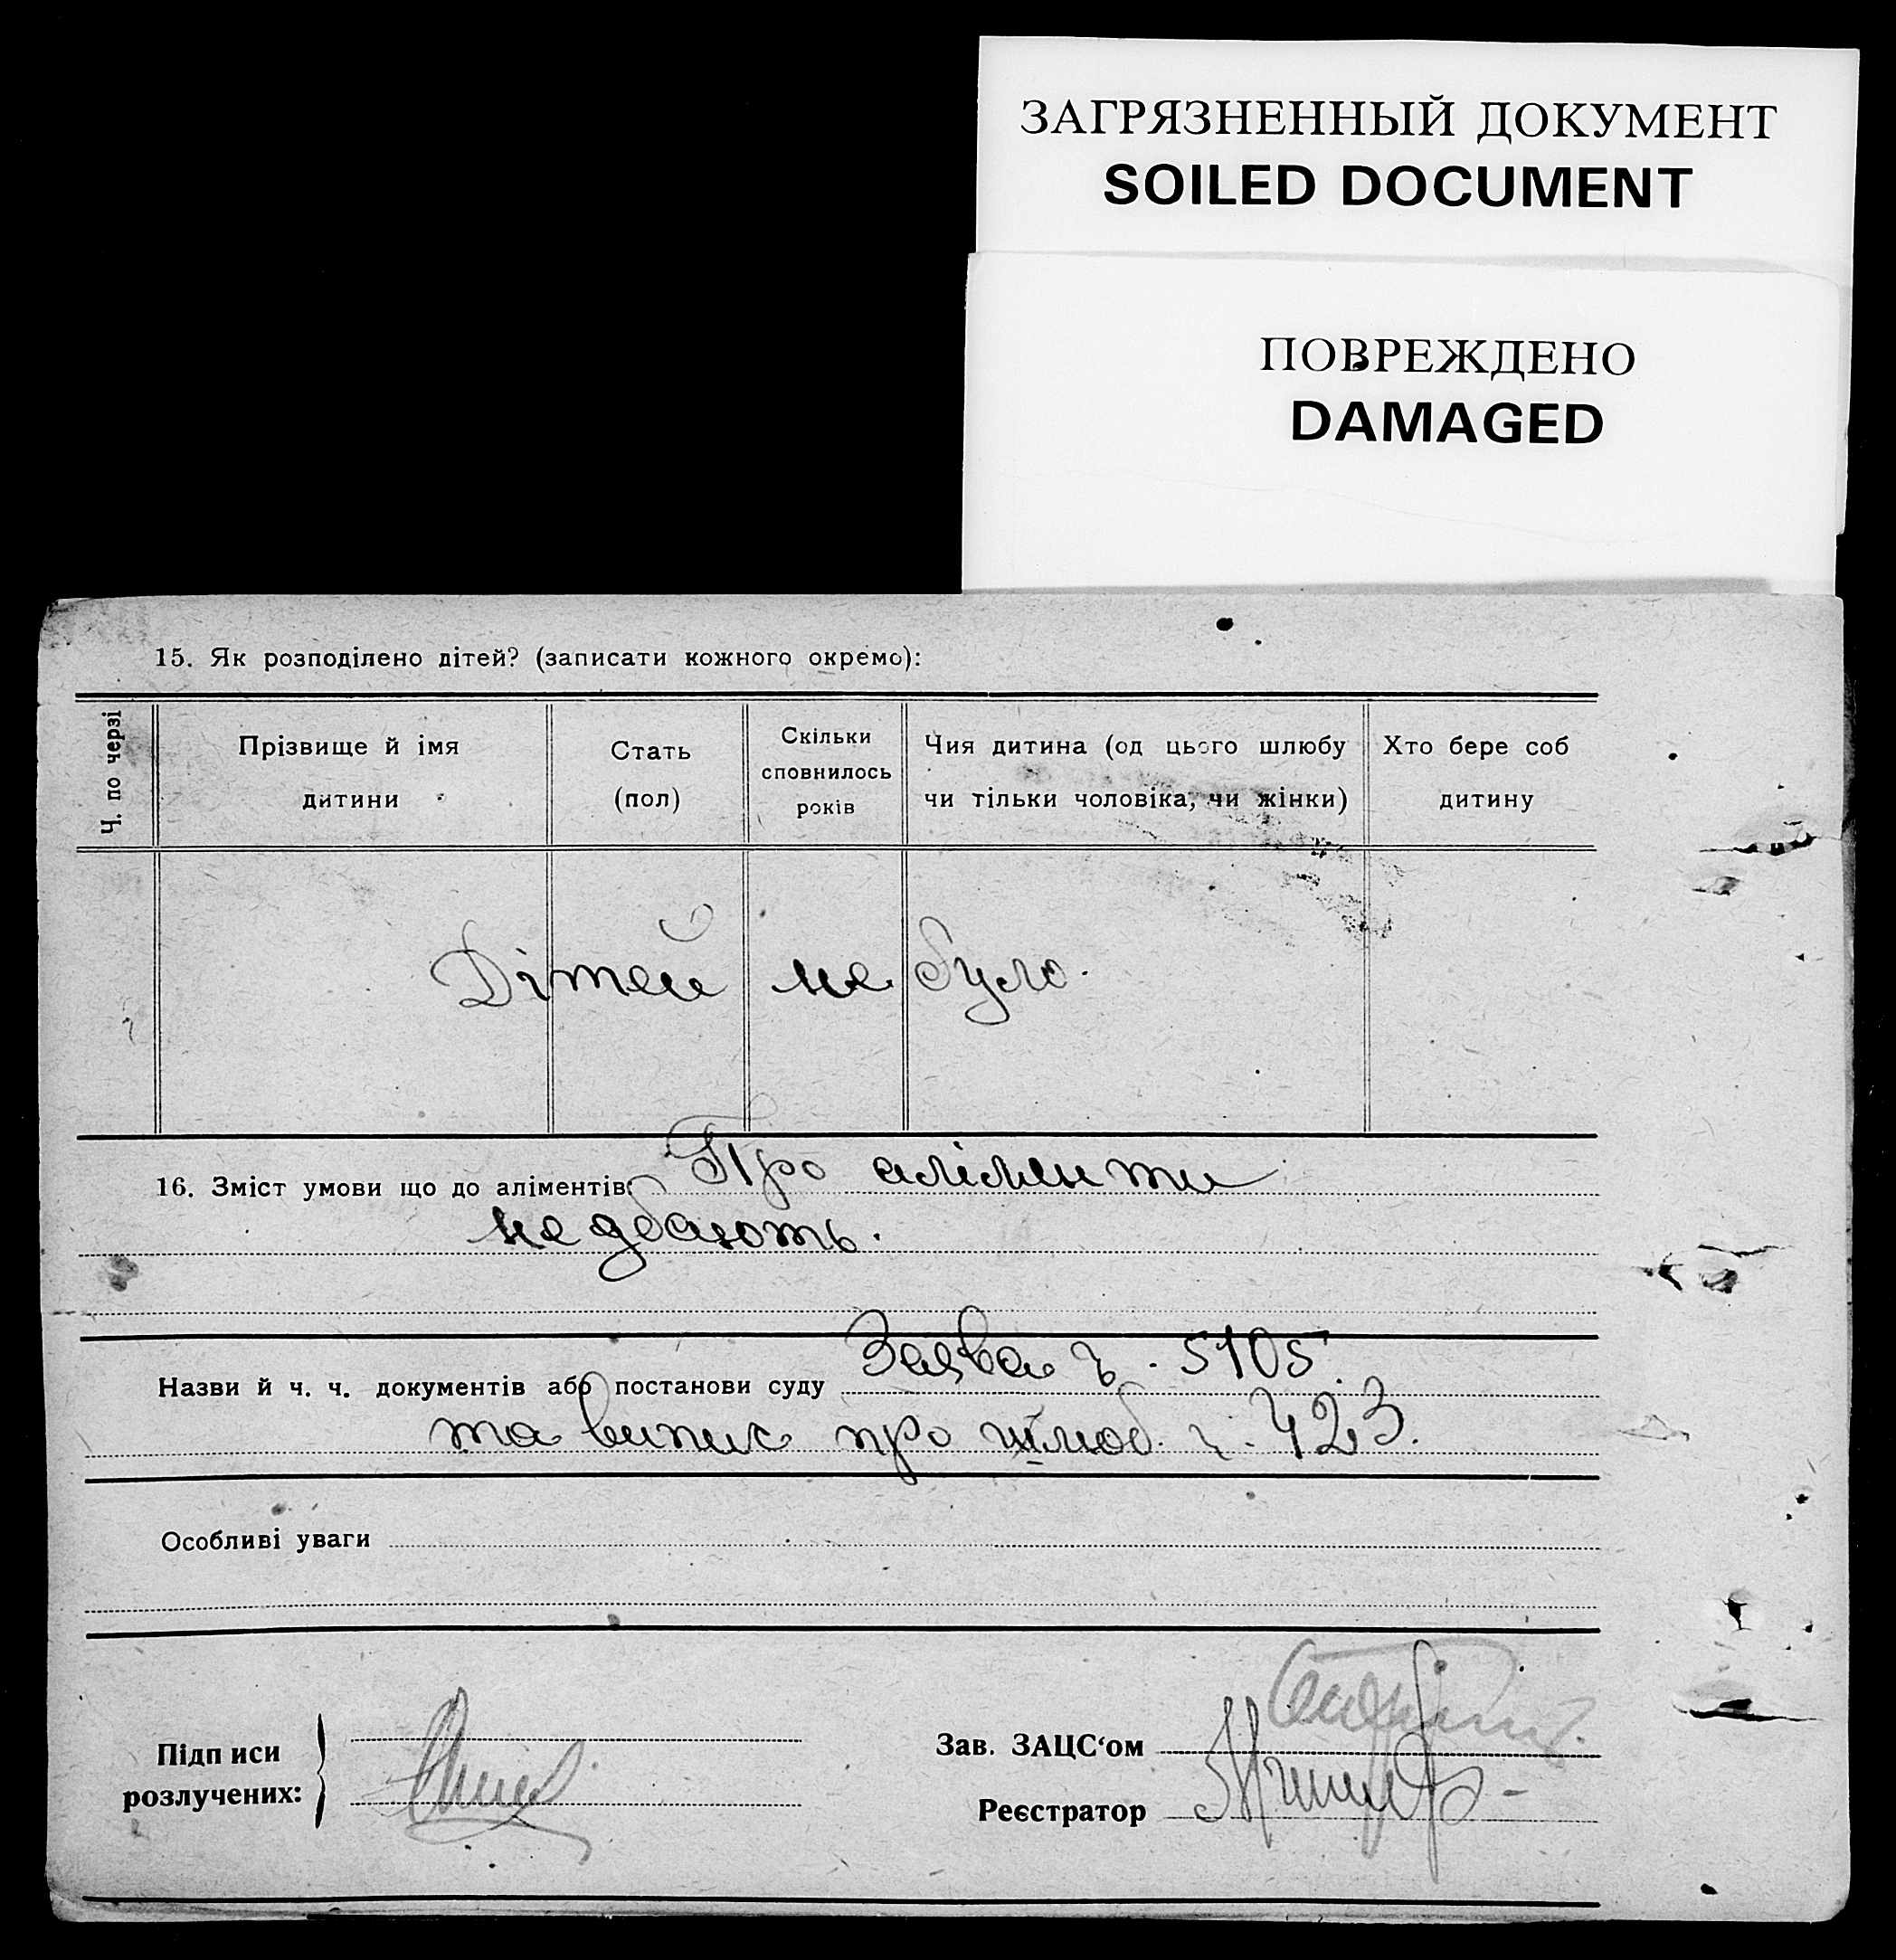 ЗАГРЯЗНЕННЫЙ ДОКУМЕНТ
SOILED DOCUMENT
ПОВРЕЖДЕНО
DAMAGED
15. Як розподілено дітей? (записати кожного окремо):
Ч. по черзі
Прізвище й імя
дитини
Стать
(пол)
Скільки
сповнилось
років
Чия дитина (од цього шлюбу
чи тільки чоловіка, чи жінки)
Хто бере соб
дитину
Дітей не було.
16. Зміст умови що до аліментів: Про аліменти
не дбають.
Назви й ч. ч. документів або постанови суду Заява ч. 5105.
та випис про шлюб. ч. 423.
Особливі уваги
Підписи
розлучених:
Зав. ЗАЦС‘ом
Реєстратор